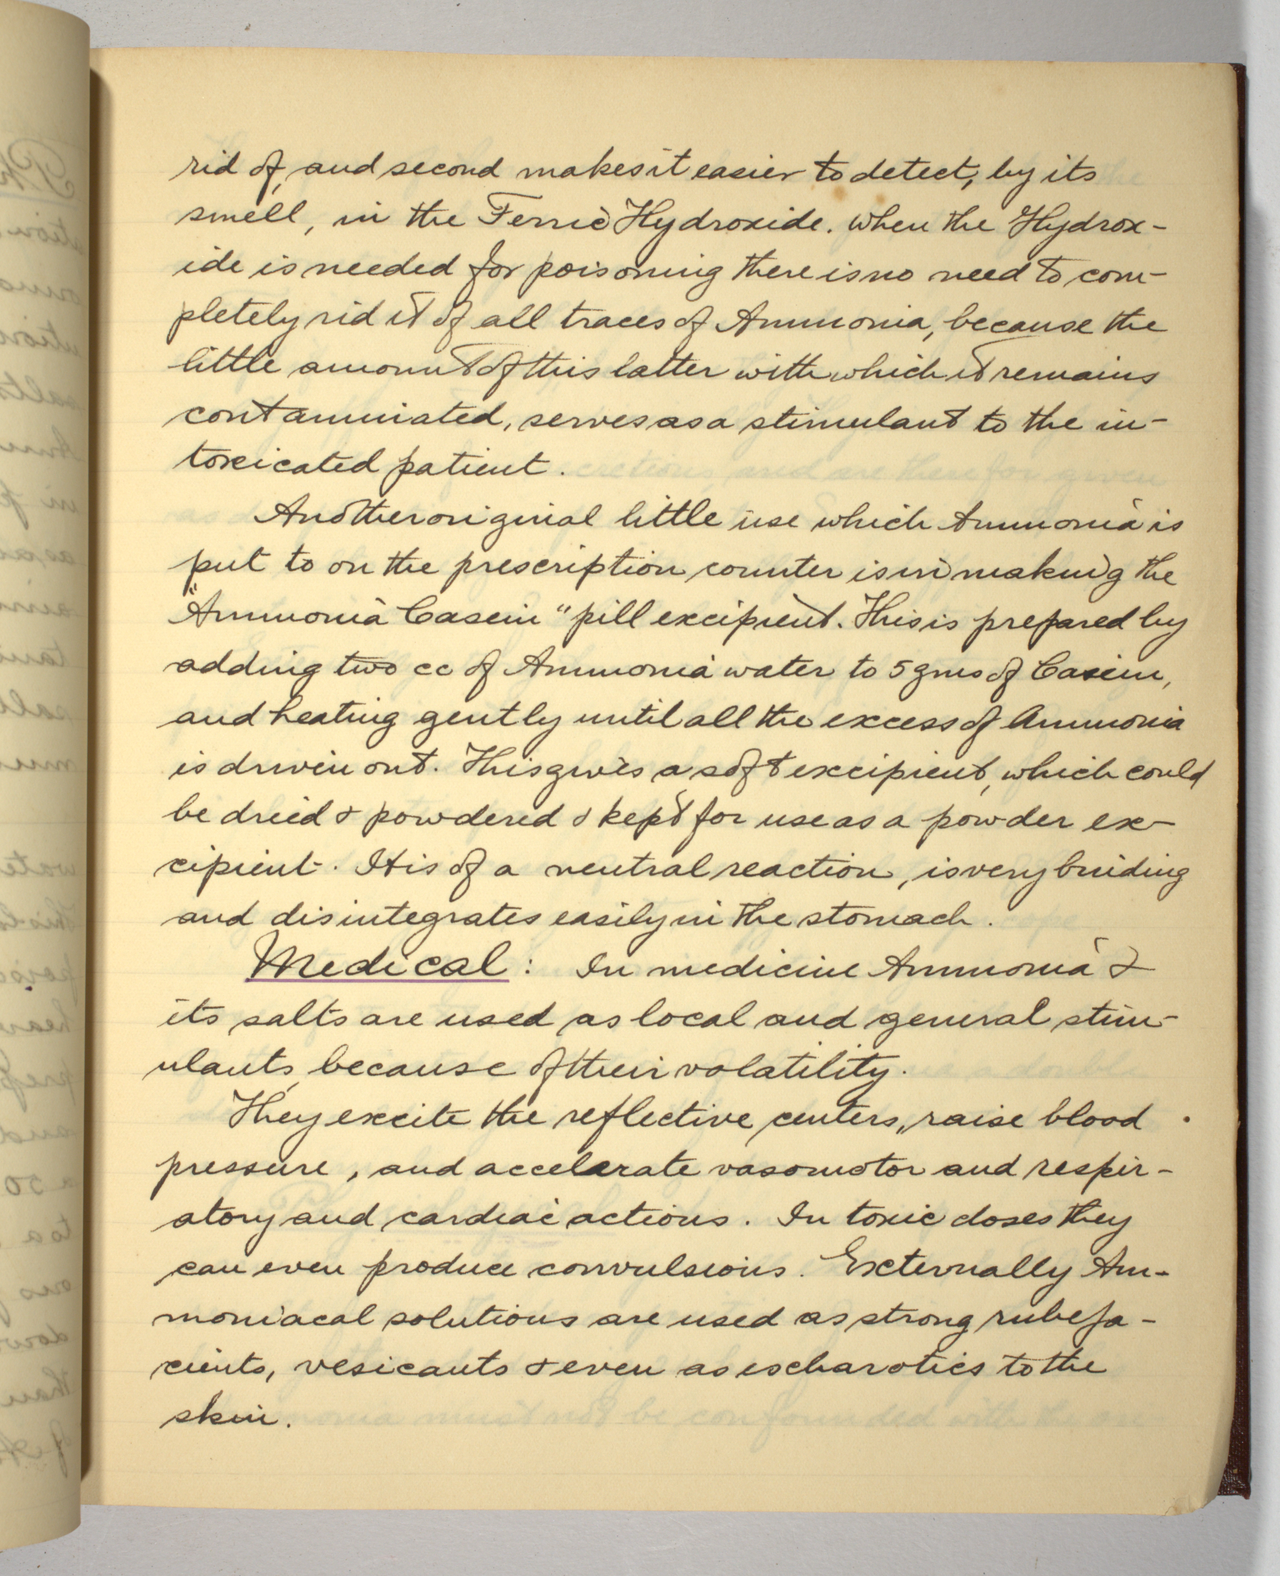 rid of, and second makes it easier to detect, by its
smell, in the Ferric Hydroxide. When the Hydrox-
ide is needed for poisoning there is no need to com-
pletely rid it of all traces of Ammonia, because the
little amount of this latter with which it remains
contaminated, serves as a stimulant to the in-
toxicated patient.
Another original little use which Ammonia is
put to on the prescription counter is in making the
"Ammonia Casein" pill excipient. This is prepared by
adding two cc of Ammonia water to 5 gms of Casein,
and heating gently until all the excess of Ammonia
is driven out. This gives a soft excipient, which could
be dried & powdered & kept for use as a powder ex-
cipient. It is of a neutral reaction, is very binding
and disintegrates easily in the stomach.
Medical: In medicine Ammonia &
its salts are used as local and general stim-
ulants, because of their volatility.
They excite the reflective centers, raise blood
pressure, and accelerate vasomotor and respir-
atory and cardiac actions. In toxic doses they
can even produce convulsions. Externally Am-
moniacal solutions are used as strong rubefa-
cients, vesicants & even as escharotics to the
skin.